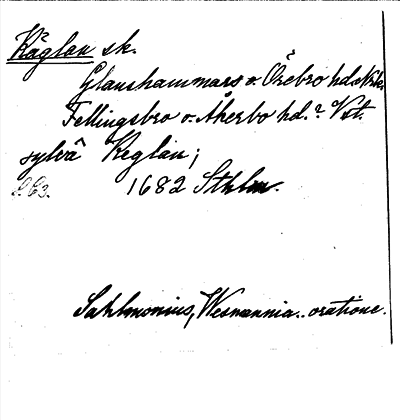 Käglan sk.
Glanshammars o. Örebro hd. Nrk.
Fellingsbro o. Åkerbo hd.? Vstm.
sylvâ Keglan;
1682 Sthlm.
Sahlmonius, Wesmannia.. oratione.